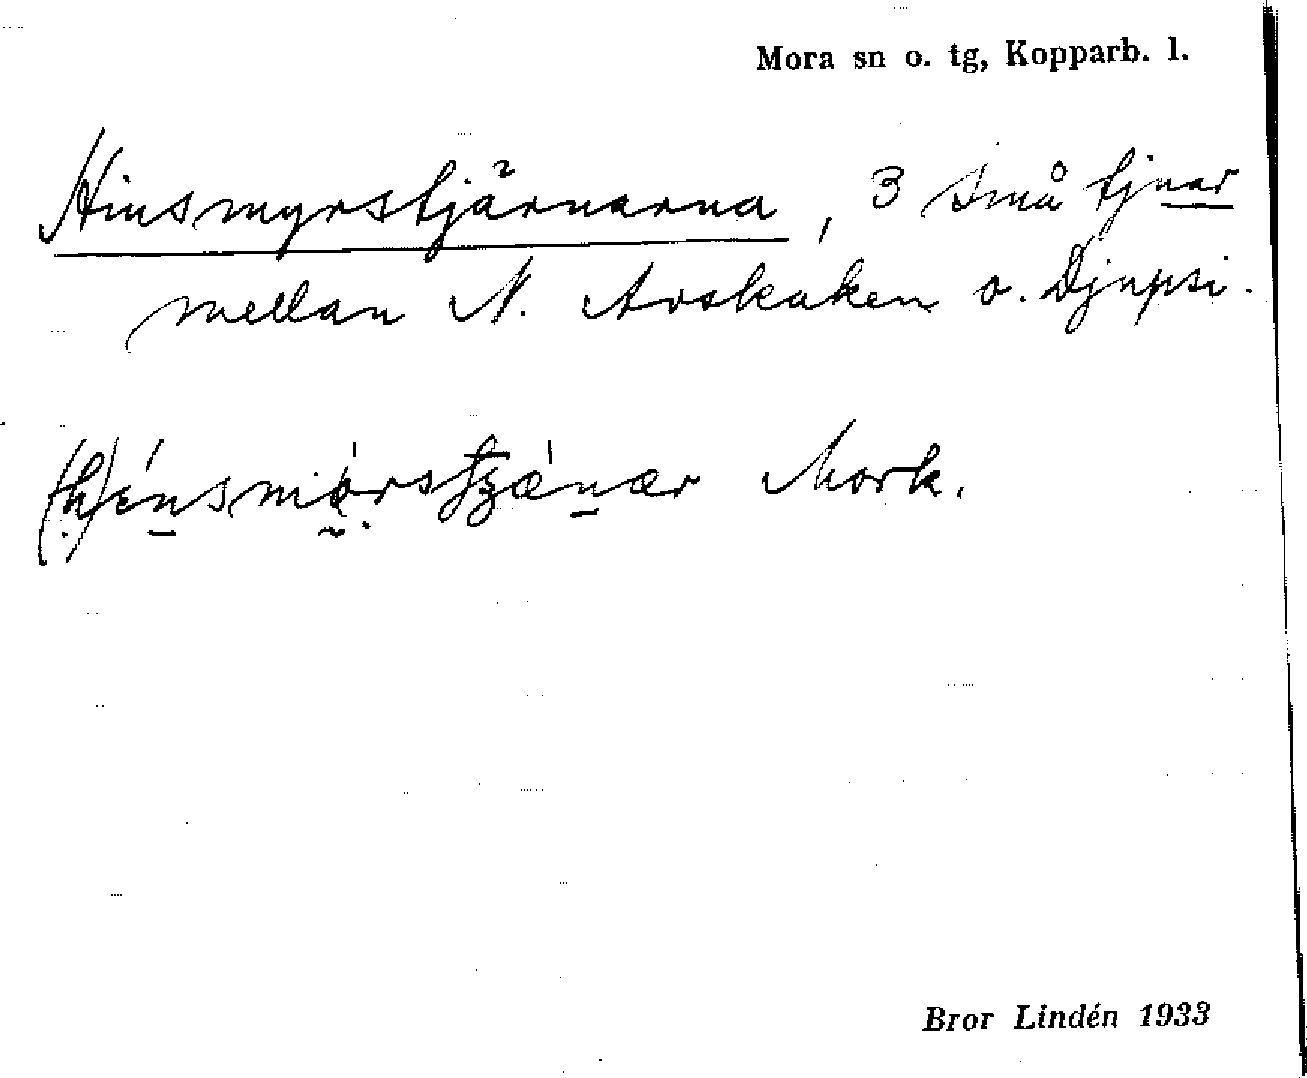 Mora sn o. tg, Kopparb. l.
Hinsmyrstjärnarna, 3 små tjnar
mellan N. Arskaken o. Djupsi.
Mork.
Bror Lindén 1933